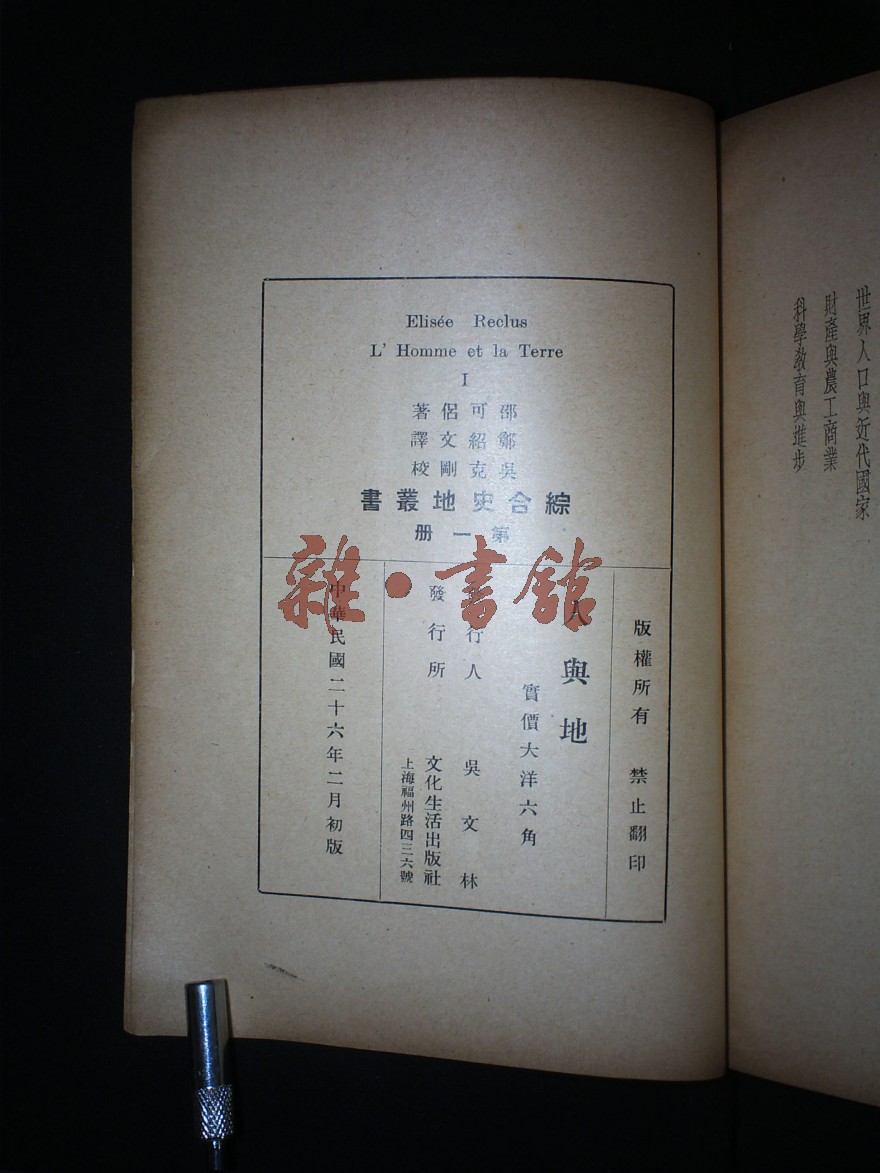 Elisée Reclus
L' Homme et la Terre
I
邵可侶著
鄭紹文譯
吳克剛校
綜合史地叢書
第一册
版權所有 禁止翻印
人與地
實價大洋六角
行人 吳文林
發行所 文化生活出版社
上海福州路四三六號
中華民國二十六年二月初版
世界人口與近代國家
財產與農工商業
科學教育與進步
雜·書館